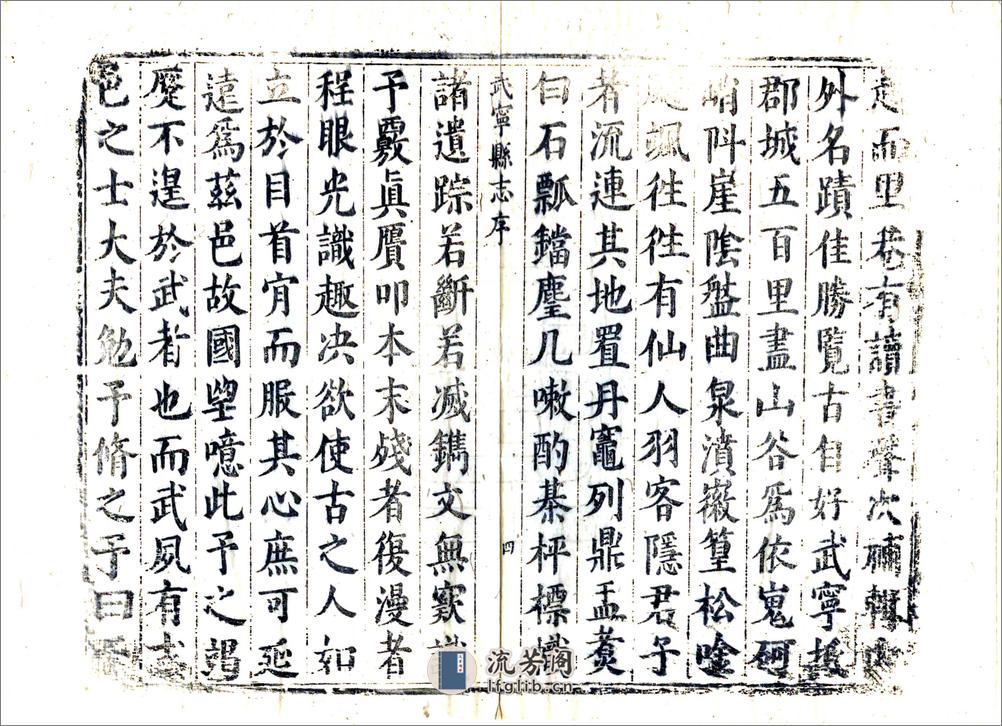 走而里巷有讀書聲次補輯
外名蹟佳勝覽古自好武寧抵
郡城五百里盡山谷爲依嵬砢
峭㟁崖陰盤曲泉濆嶶篁松唫
颯徃徃有仙人羽客隱君子
者流連其地置丹竈列鼎盂㷊
臼石瓢鐺麈几嗽酌棊枰標
武寧縣志序
四
諸遺踪若斷若滅鐫文無窽
予覈眞贋叩本末殘者復漫者
程眼光識趣决欲使古之人如
立於目首肯而服其心庶可延
遠爲茲邑故國朢噫此予之竭
蹷不遑於武者也而武夙有志
邑之士大夫勉予脩之予曰
流芳閣
lfglib.cn